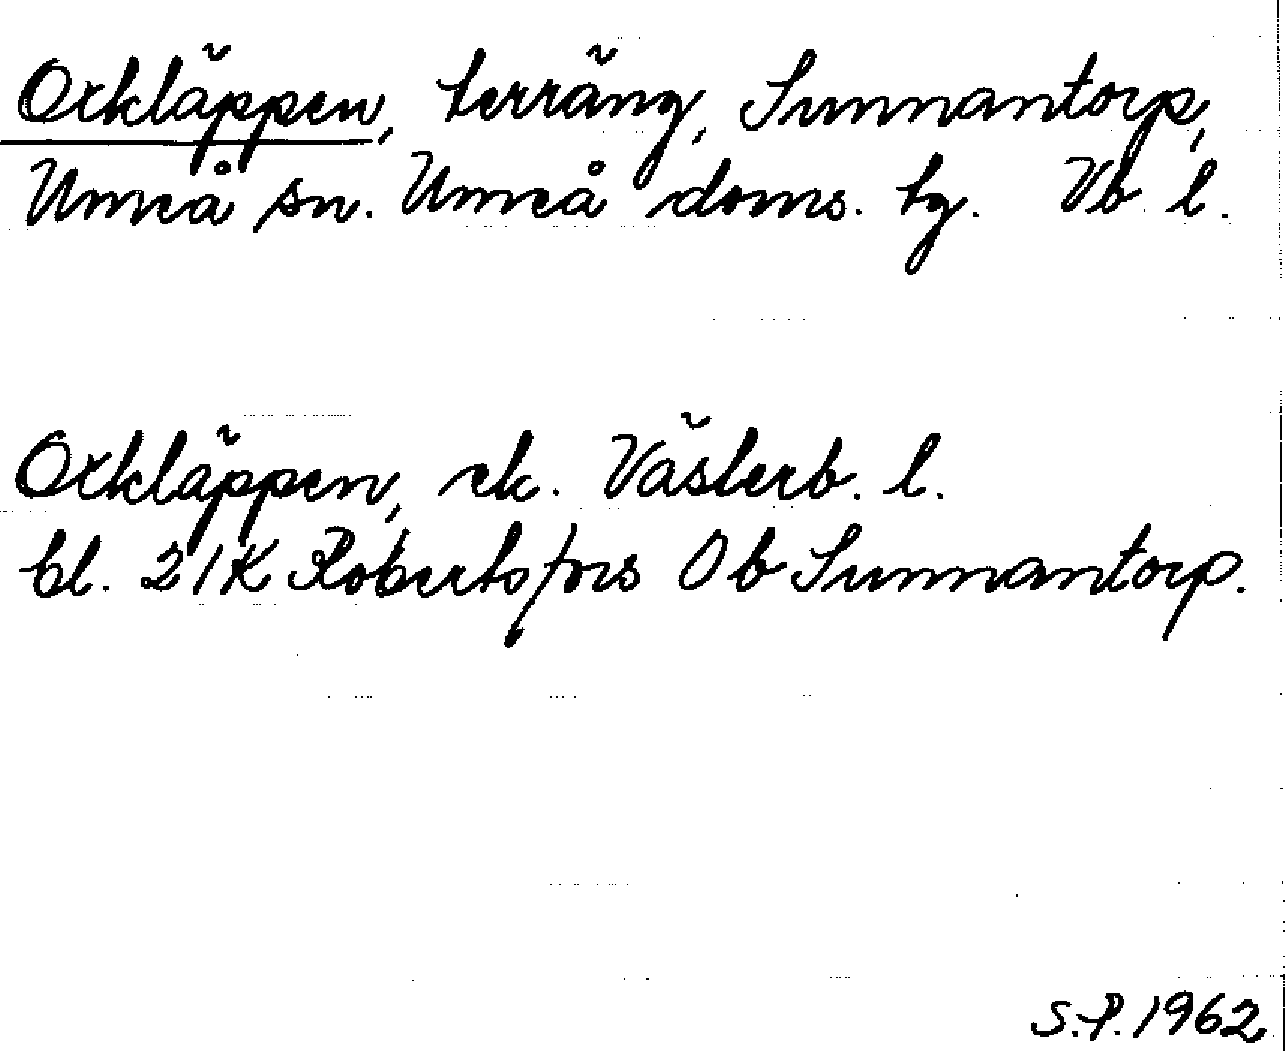 Oxkläppen, terräng, Sunnantorp,
Umeå sn. Umeå doms. tg. Vb l.
Oxkläppen, ek. Västerb. l.
bl. 21K Robertsfors Ob Sunnantorp.
S.P. 1962